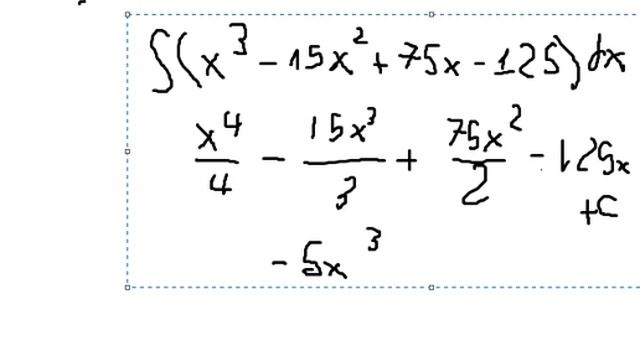 ∫(x³ - 15x² + 75x - 125)dx
x⁴/4 - 15x³/3 + 75x²/2 - 125x
+c
- 5x³